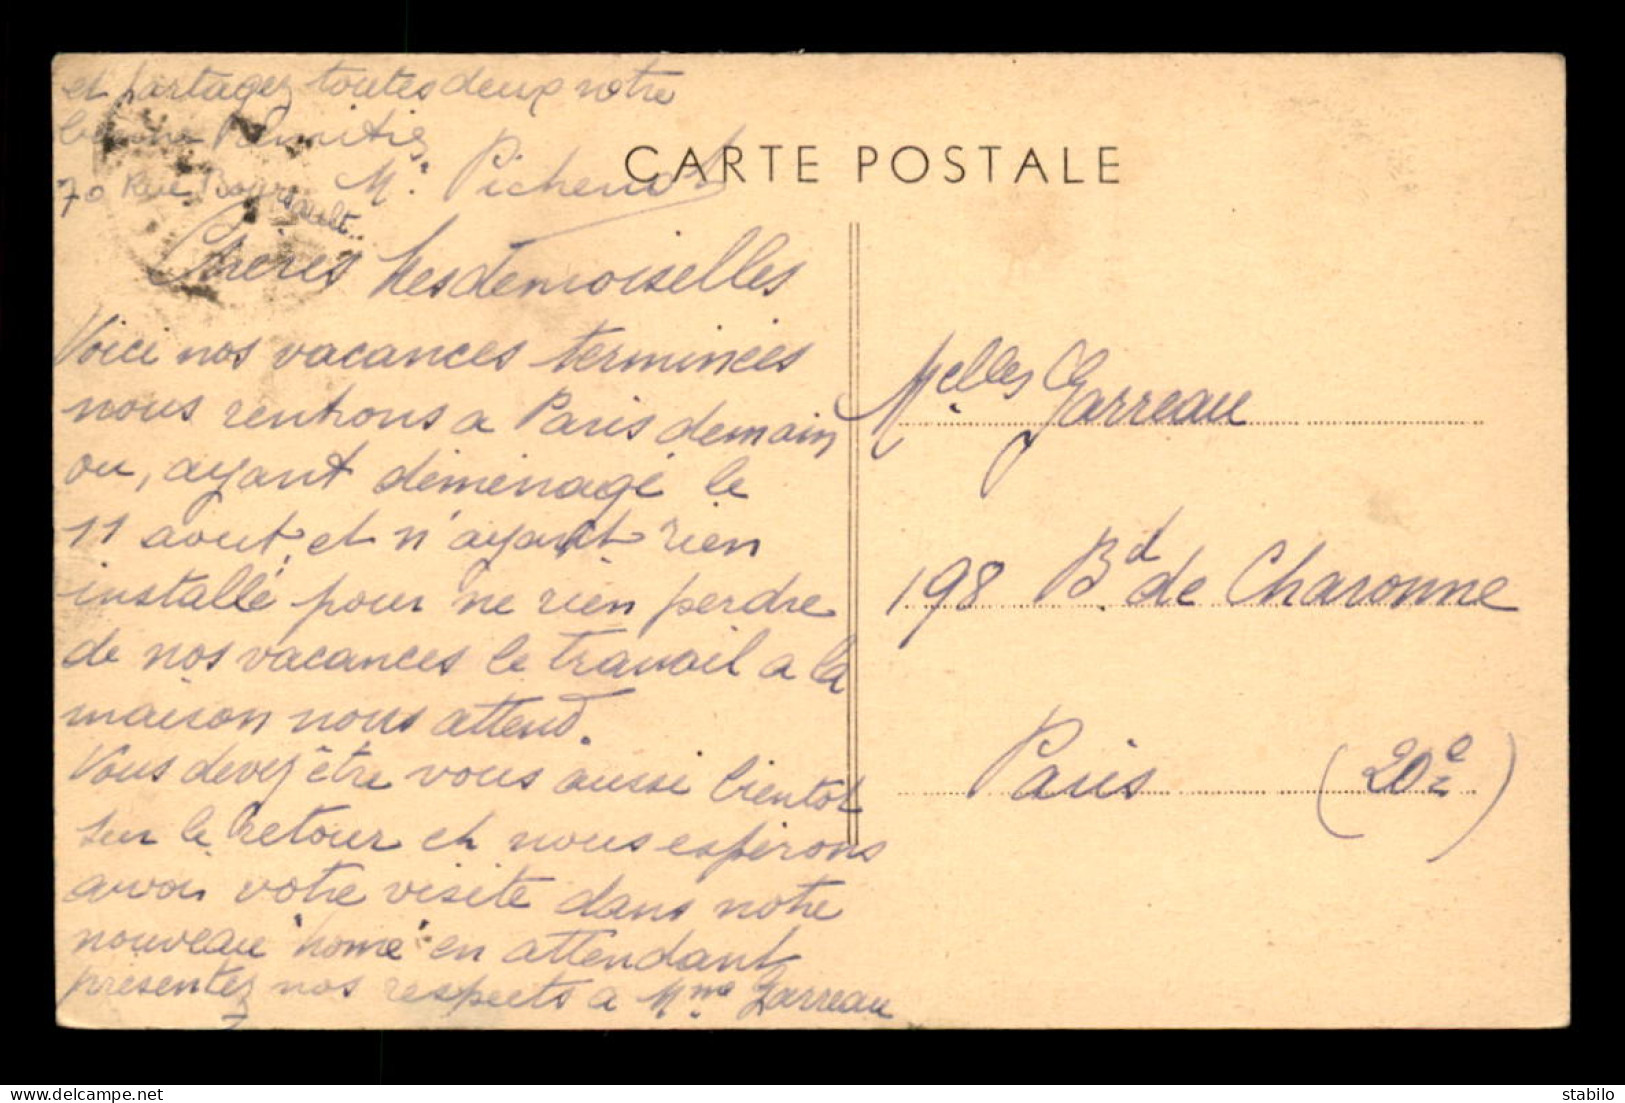 et partagez toutes deux notre
bonne Amitié
M. Pichenot
70 Rue Boursault.
CARTE POSTALE
Chères Mesdemoiselles
Voici nos vacances terminées
nous rentrons a Paris demain
ou, ayant déménagé le
11 aout, et n'ayant rien
installé pour ne rien perdre
de nos vacances le travail a la
maison nous attend.
Vous devez être vous aussi bientot
sur le retour et nous espérons
avoir votre visite dans notre
nouveau "home" en attendant
présentez nos respects a Mme Garreau
Melles Garreau
198 Bd de Charonne
Paris (20e)
stabilo